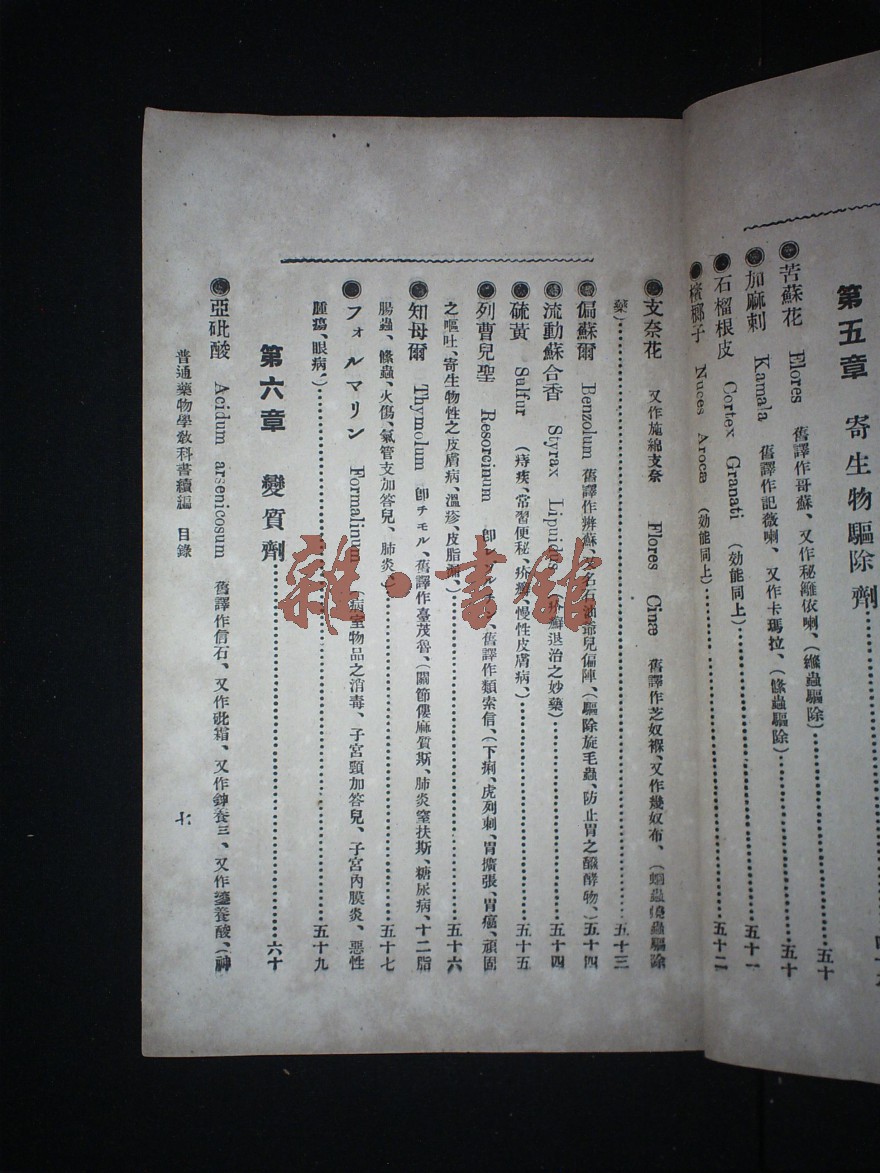 第五章　寄生物驅除劑
苦蘇花　Flores　舊譯作哥蘇、又作秘雞依喇、(縧蟲驅除)
五十
加麻刺　Kamala　舊譯作記薇喇、又作卡瑪拉、(縧蟲驅除)
五十
石榴根皮　Cortex Granati　(効能同上)
五十一
檳榔子　Nuces Arocæ　(効能同上)
五十二
支奈花　又作施綿支奈　Flores Cinæ　舊譯作芝奴褓、又作幾奴布、(蛔蟲蟯蟲驅除
藥)
五十三
偏蘇爾　Benzolum　舊譯作辨蘇、又名石油爺兒偏陣、(驅除旋毛蟲、防止胃之醱酵物、)五十四
流動蘇合香　Styrax Lipuidus　(疥癬退治之妙藥)
五十四
硫黃　Sulfur　(痔疾、常習便秘、疥癬、慢性皮膚病、)
五十五
列曹兒聖　Resorcinum　舊譯作類索信、(下痢、虎列刺、胃擴張、胃癌、頑固
之嘔吐、寄生物性之皮膚病、溫疹、皮脂漏、)
五十六
知母爾　Thymolum　卽チモル、舊譯作臺茂魯、(關節僂麻質斯、肺炎窒扶斯、糖尿病、十二脂
腸蟲、縧蟲、火傷、氣管支加答兒、肺炎、)
五十七
フォルマリン　Formalinum　(病室物品之消毒、子宮頸加答兒、子宮內膜炎、惡性
腫瘍、眼病、)
五十九
第六章　變質劑
六十
亞砒酸　Acidum arsenicosum　舊譯作信石、又作砒霜、又作鉮養三、又作養酸、(神
普通藥物學敎科書續編　目錄
七
雜·書館